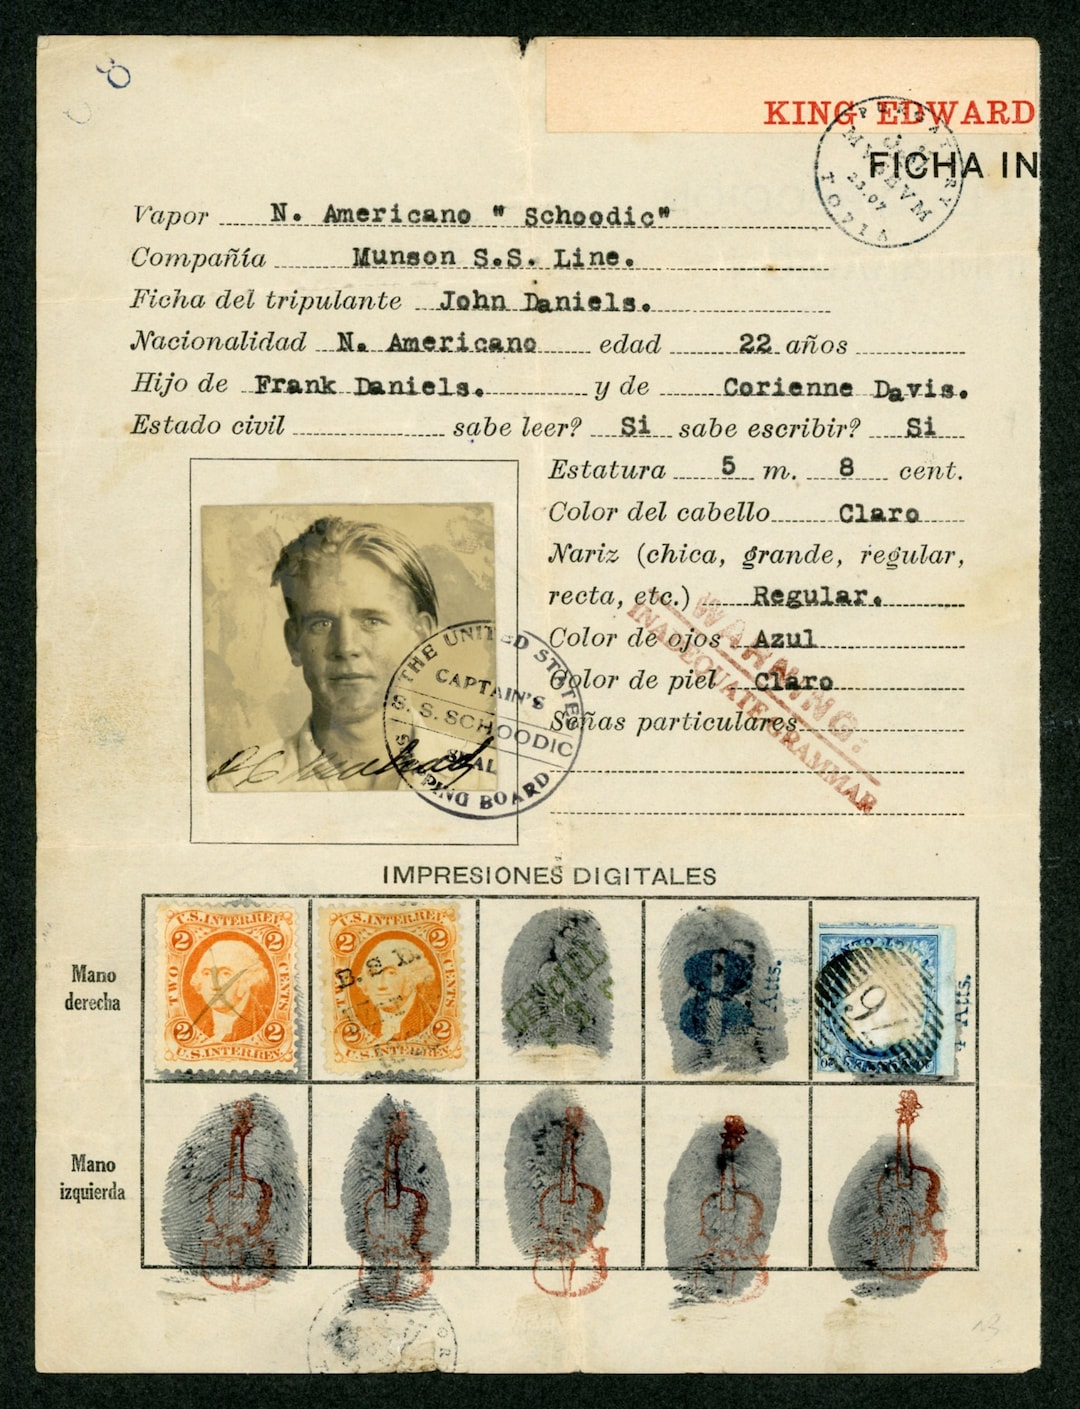 8
KING EDWARD
FICHA IN
MVSEVM
23.07
Vapor N. Americano " Schoodic"
Compañía Munson S.S. Line.
Ficha del tripulante John Daniels.
Nacionalidad N. Americano edad 22 años
Hijo de Frank Daniels. y de Corienne Davis.
Estado civil sabe leer? Si sabe escribir? Si
Estatura 5 m. 8 cent.
Color del cabello Claro
Nariz (chica, grande, regular,
recta, etc.) Regular.
Color de ojos Azul
Color de piel Claro
Señas particulares
WARNING:
INADEQUATE GRAMMAR
THE UNITED STATES
CAPTAIN'S
S. S. SCHOODIC
SEAL
SHIPPING BOARD
IMPRESIONES DIGITALES
Mano
derecha
U.S. INTER. REV.
2 2
TWO CENTS
2 2
U.S. INTER. REV.
U.S. INTER. REV.
2 2
B. S. L.
TWO CENTS
2 2
U.S. INTER. REV.
8
Atts.
97
Atts.
Mano
izquierda